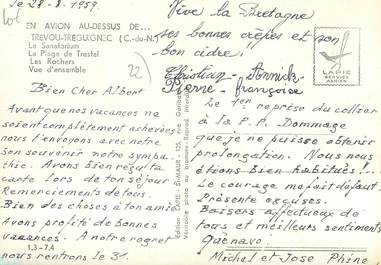 le 28-8-1959
EN AVION AU-DESSUS DE...
TREVOU-TREGUIGNEC (C.-du-N.)
Le Sanatorium
La Plage de Trestel
Les Rochers
Vue d'ensemble
22
Bien Cher Albert
Avant que nos vacances ne
soient complètement achevées
nous t'envoyons avec notre
bon souvenir notre sympa-
thie. Avons bien reçu ta
carte lors de ton séjour.
Remerciements de tous.
Bien des choses à ton amie
Avons profité de bonnes
vacances. A notre regret
nous rentrons le 31.
1.3-7.4
Vive la Bretagne
ses bonnes crêpes et son
bon cidre!!
Christian - Annick
Pierre - Françoise
LAPIE
SERVICE
AERIEN
Le 1er reprise du collier
à la P.P. Dommage
que je ne puisse obtenir
prolongation. Nous nous
étions bien habitués!..
Le courage me fait défaut.
Présente excuses.
Baisers affectueux de
tous et meilleurs sentiments
Quénavo.
Michel et José Phine.